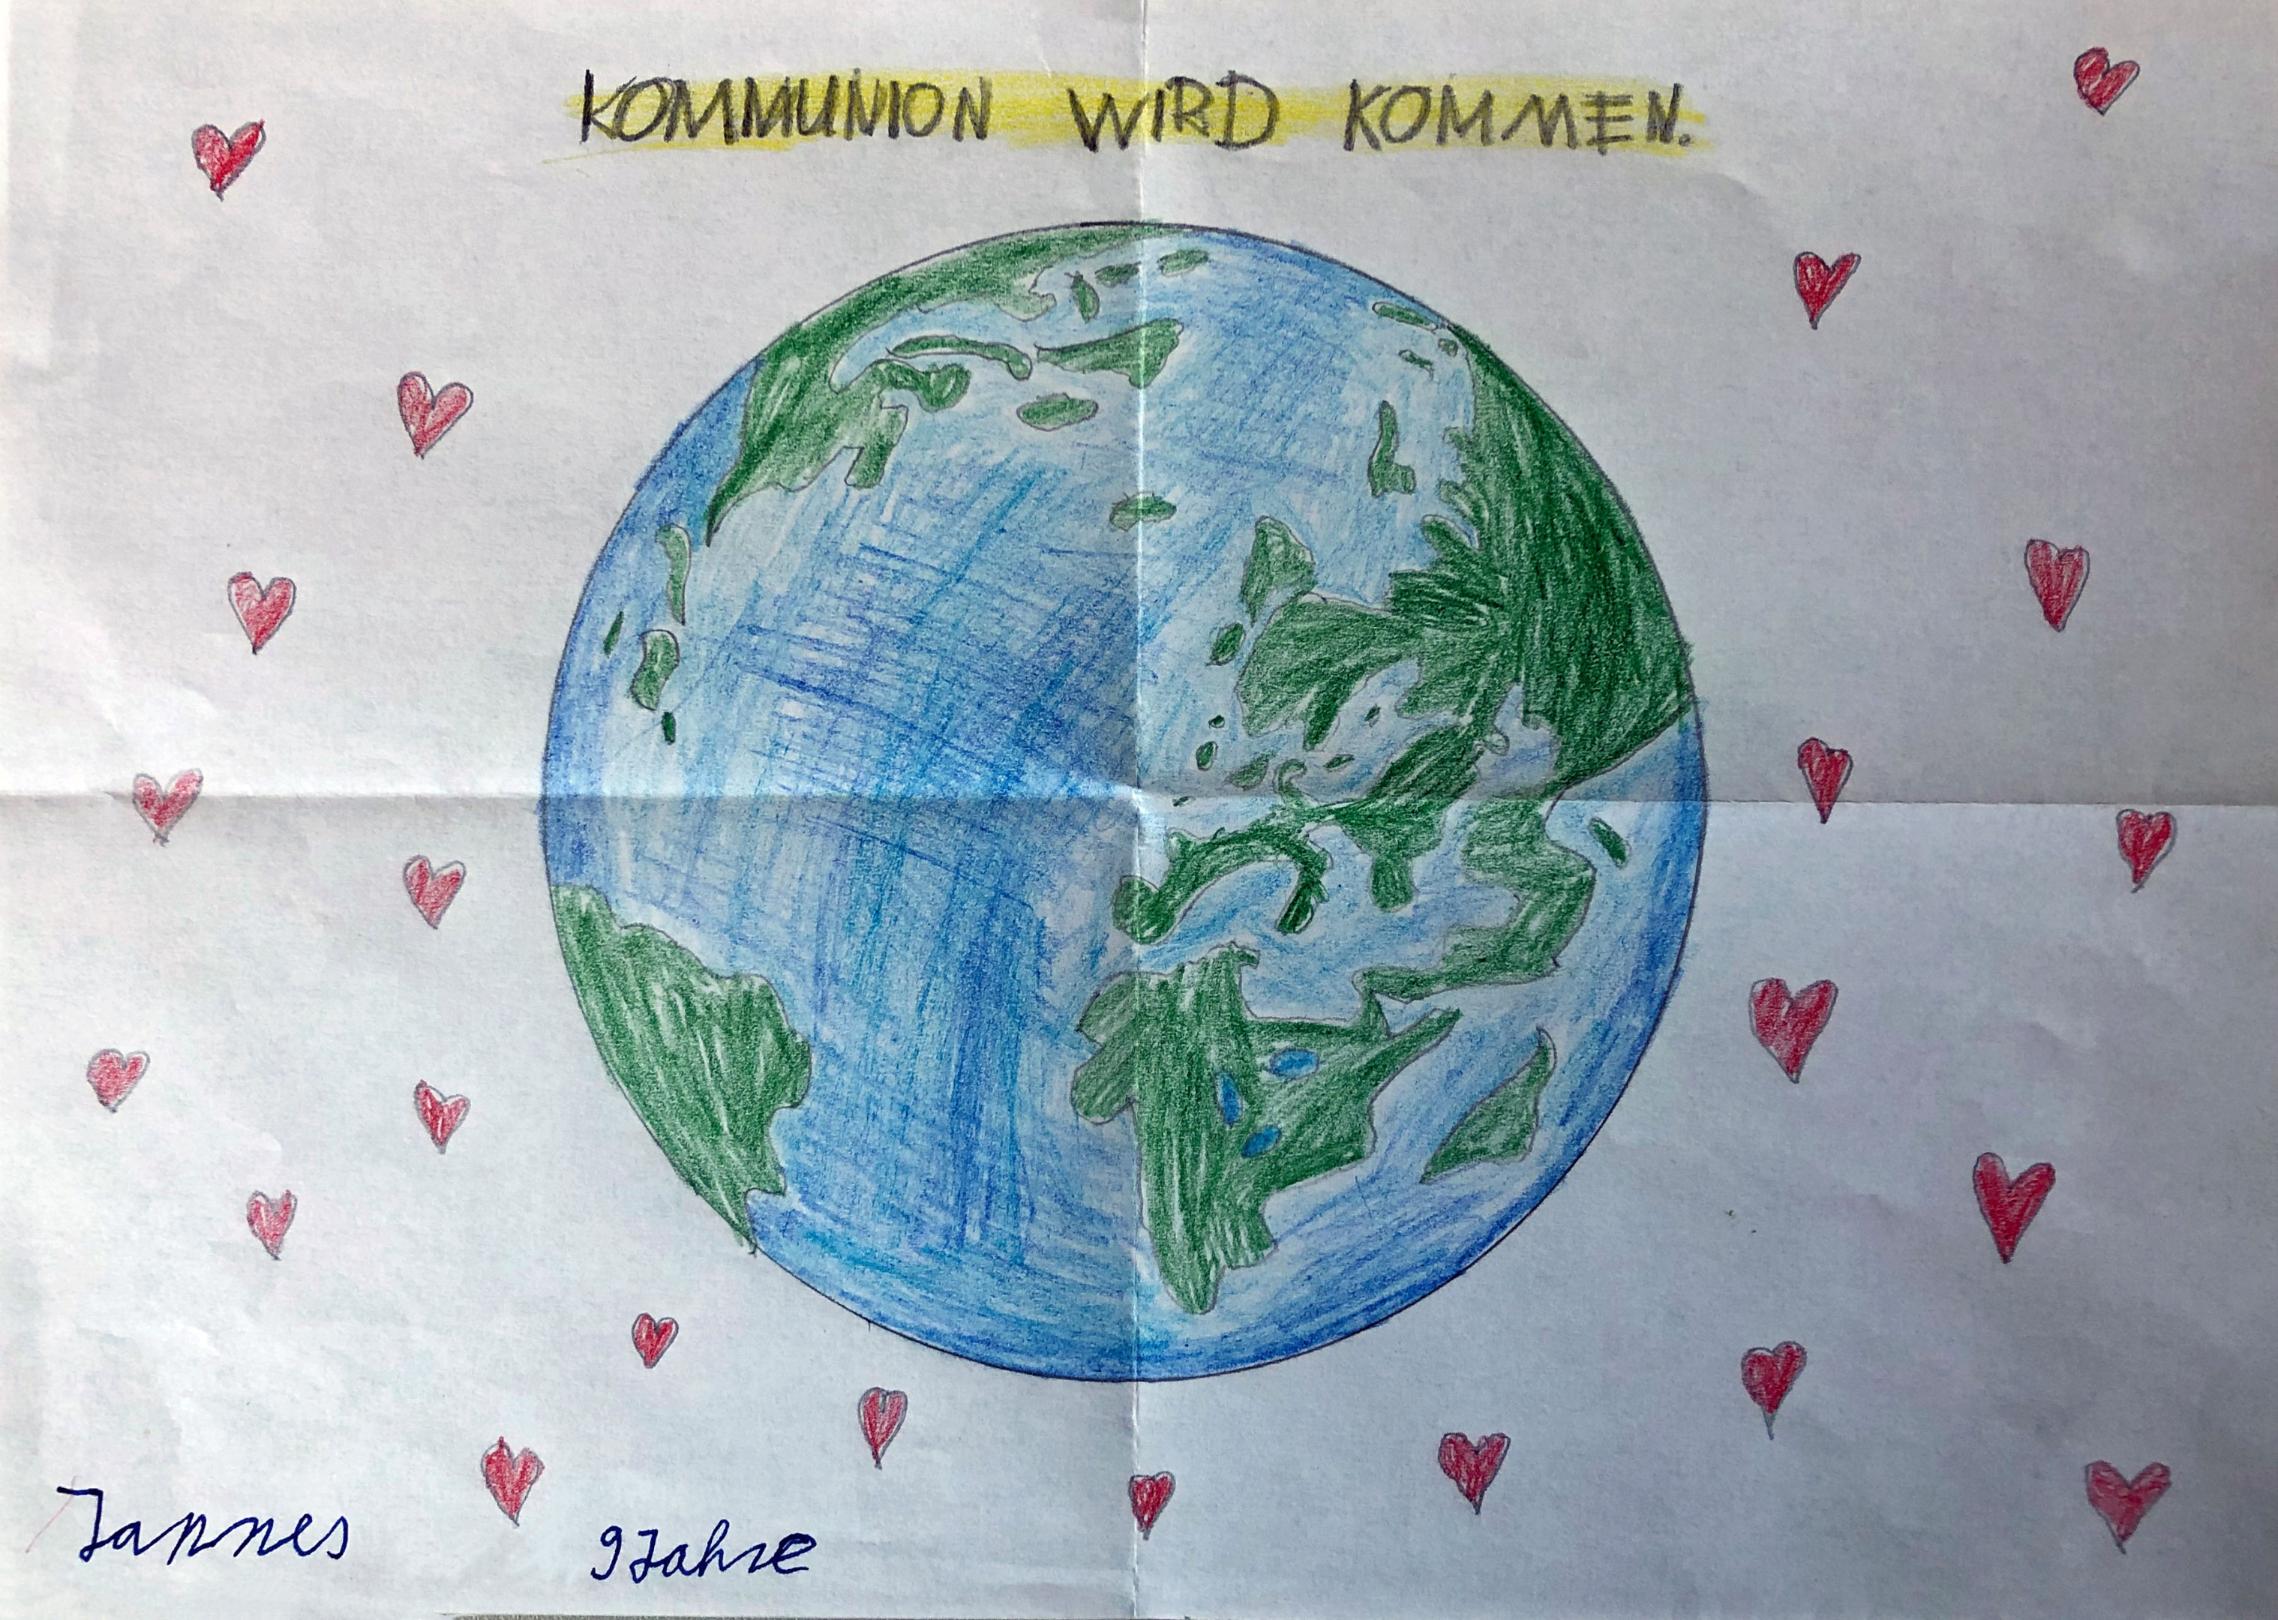 KOMMUNION WIRD KOMMEN.
Jannes 9 Jahre